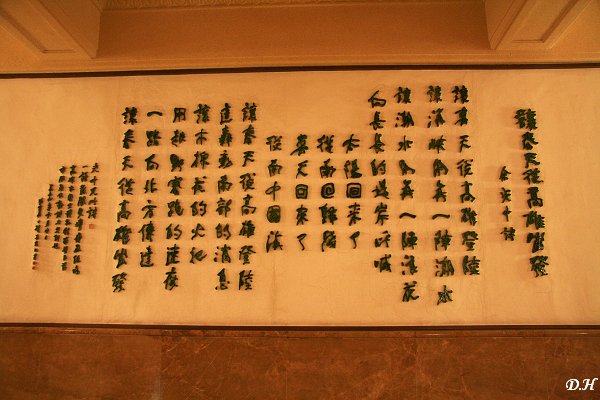 讓春天從高雄出發
余光中詩
讓春天從高雄登陸
讓海峽用每一陣潮水
讓潮水用每一陣浪花
向長長的堤岸呼喊
太陽回來了
從南回歸線
春天回來了
從南中國海
讓春天從高雄登陸
這轟動南部的消息
讓木棉花的火把
用越野賽跑的速度
一路向北方傳達
讓春天從高雄出發
D.H